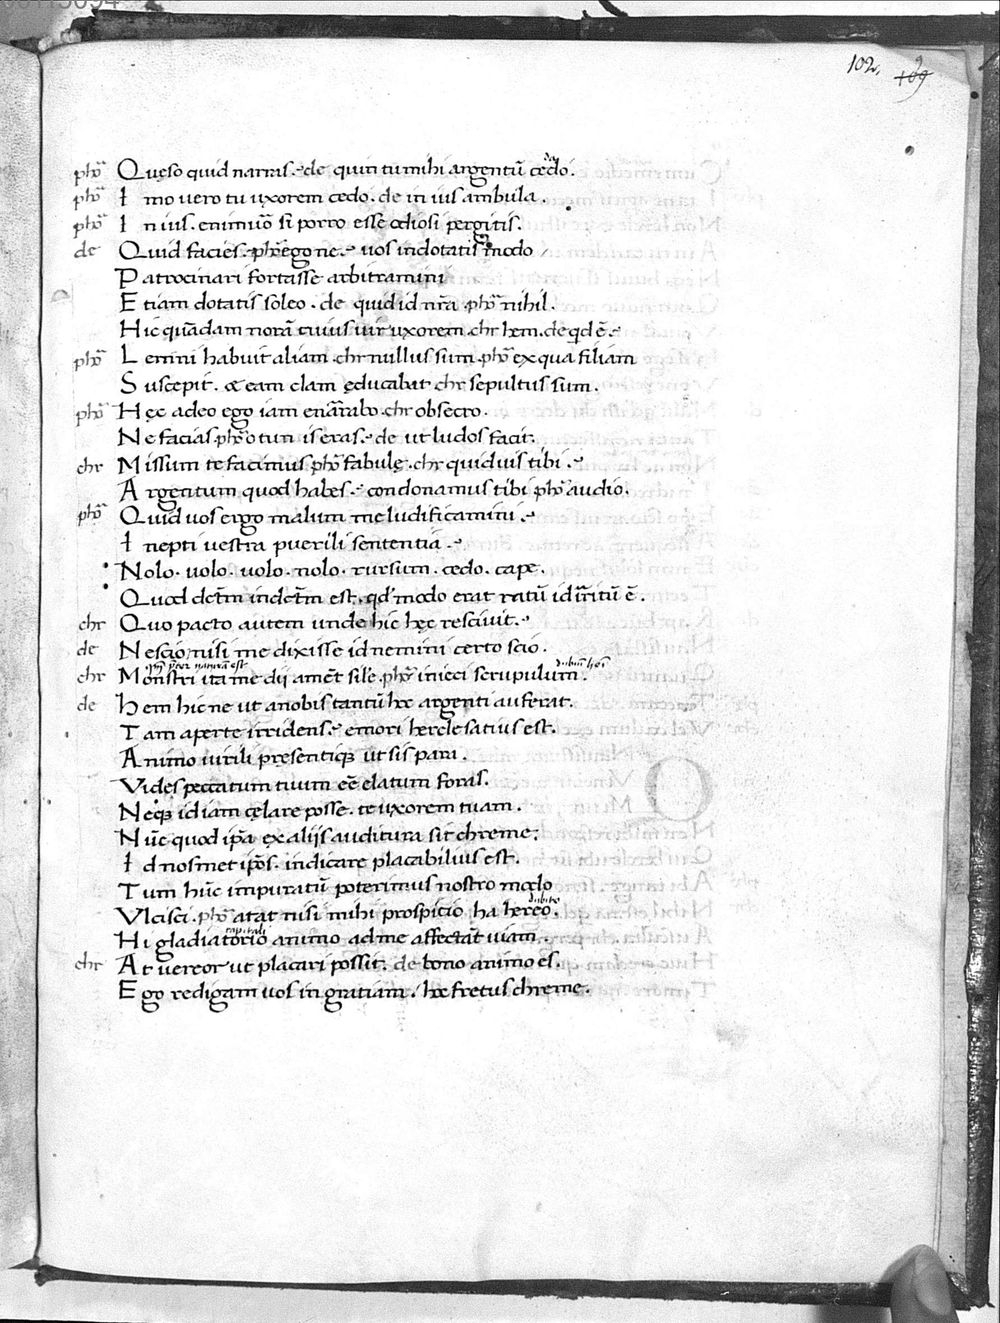 102. 109
phō Quęso quid narras. de quin tu mihi argentū cędo.
phō Imo vero tu uxorem cedo. de in ius ambula.
phō In ius. enimuō si porro esse odiosi pergitis.
de Quid facies. phō egone. uos indotatis modo
Patrocinari fortasse arbitramini
Etiam dotatis soleo. de quid id nr̄a phō nihil.
Hic quādam norā cuius uir uxorem. chr hem. de qd ē.
phō Lemni habuit aliam. chr nullus sum. phō ex qua filiam
Suscepit. & eam clam ęducabat chr sepultus sum.
phō Hęc adeo ego iam enarrabo. chr obsecro.
Ne facias phō o tun is eras. de ut ludos facit.
chr Missum te facimus phō fabulę. chr quid uis tibi.
Argentum quod habes condonamus tibi phō audio.
phō Quid uos ergo malum me ludificamini.
Inepti uestra puerili sententia.
Nolo. uolo. uolo. nolo. rursum. cedo. cape.
Quod dctm̄ indctm̄ est. qd modo erat ratū id irritū ē.
chr Quo pacto autem unde hic hęc resciuit.
de Nescio, nisi me dixisse id nemini certo scio.
chr Monstri ita me dii amēt sile. phō inieci scrupulum.
de hem hicne ut a nobis tantū hoc argenti auferat.
Tam aperte irridens. emori hercle satius est.
Animo uirili presentiq; ut sis para.
Vides peccatum tuum eē elatum foras.
Neq; id iam cęlare posse. te uxorem tuam.
Nūc quod ip̄a ex aliis auditura sit chreme;
Id nosmet ip̄os. indicare placabilius est.
Tum hūc impuratū poterimus nostro modo
dubito
Vlcisci. phō atat nisi mihi prospicio ha hereo.
capitali
Hi gladiatorio animo ad me affectāt uiam.
chr At uereor ut placari possit. de bono animo es.
Ego redigam uos in gratiam. hoc fretus chreme.